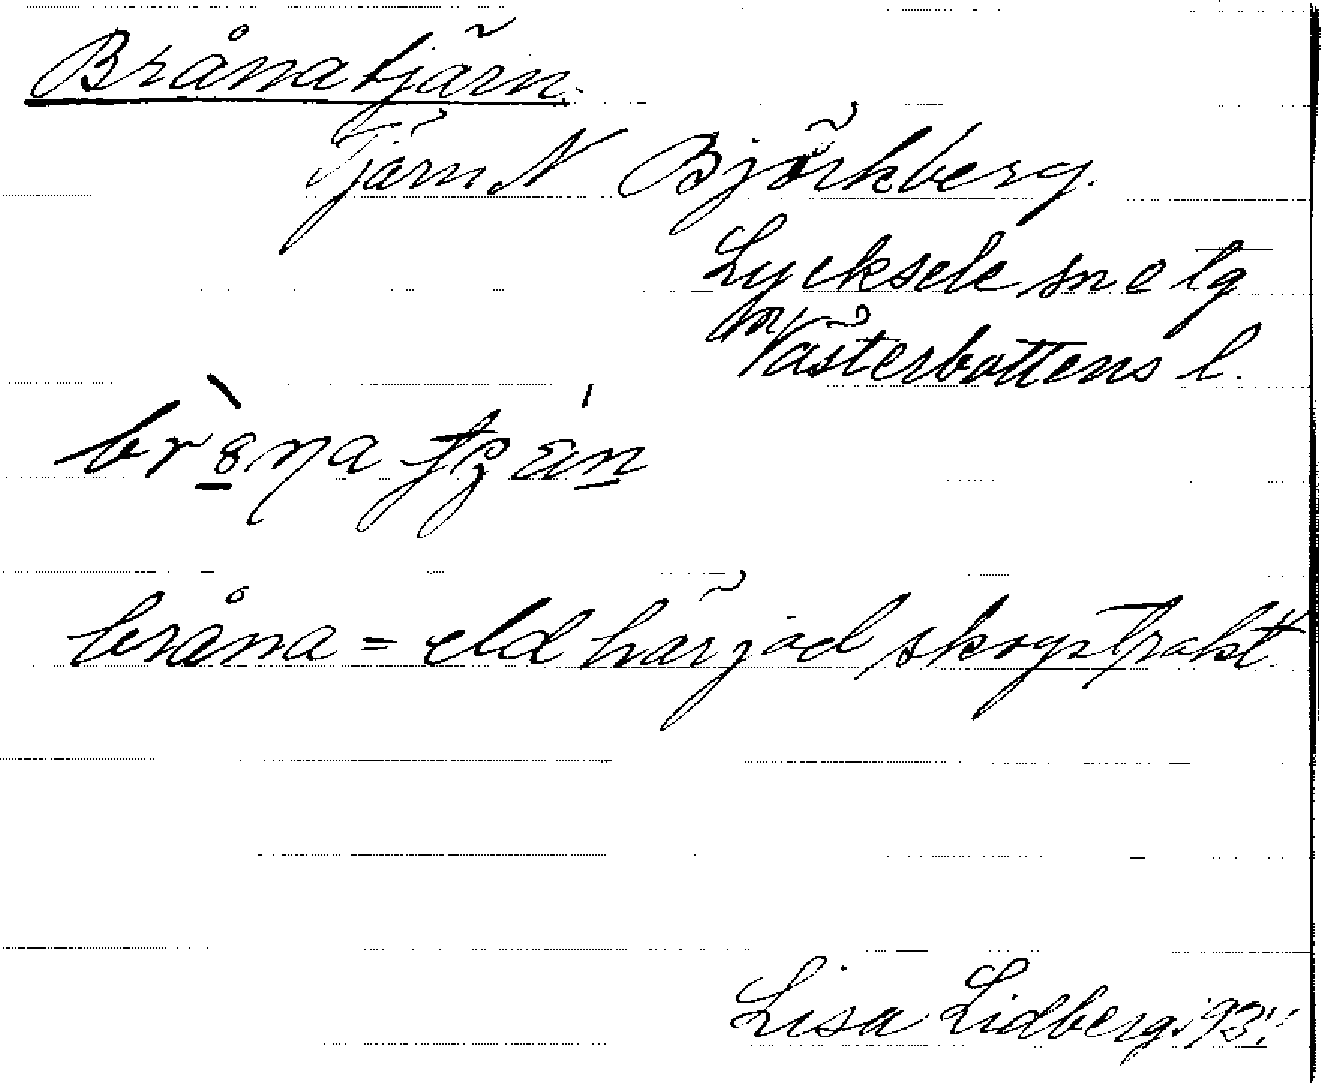 Brånatjärn.
Tjärn N Björkberg.
Lycksele sn o tg
Västerbottens l.
bråna = eldhärjad skogstrakt.
Lisa Lidberg